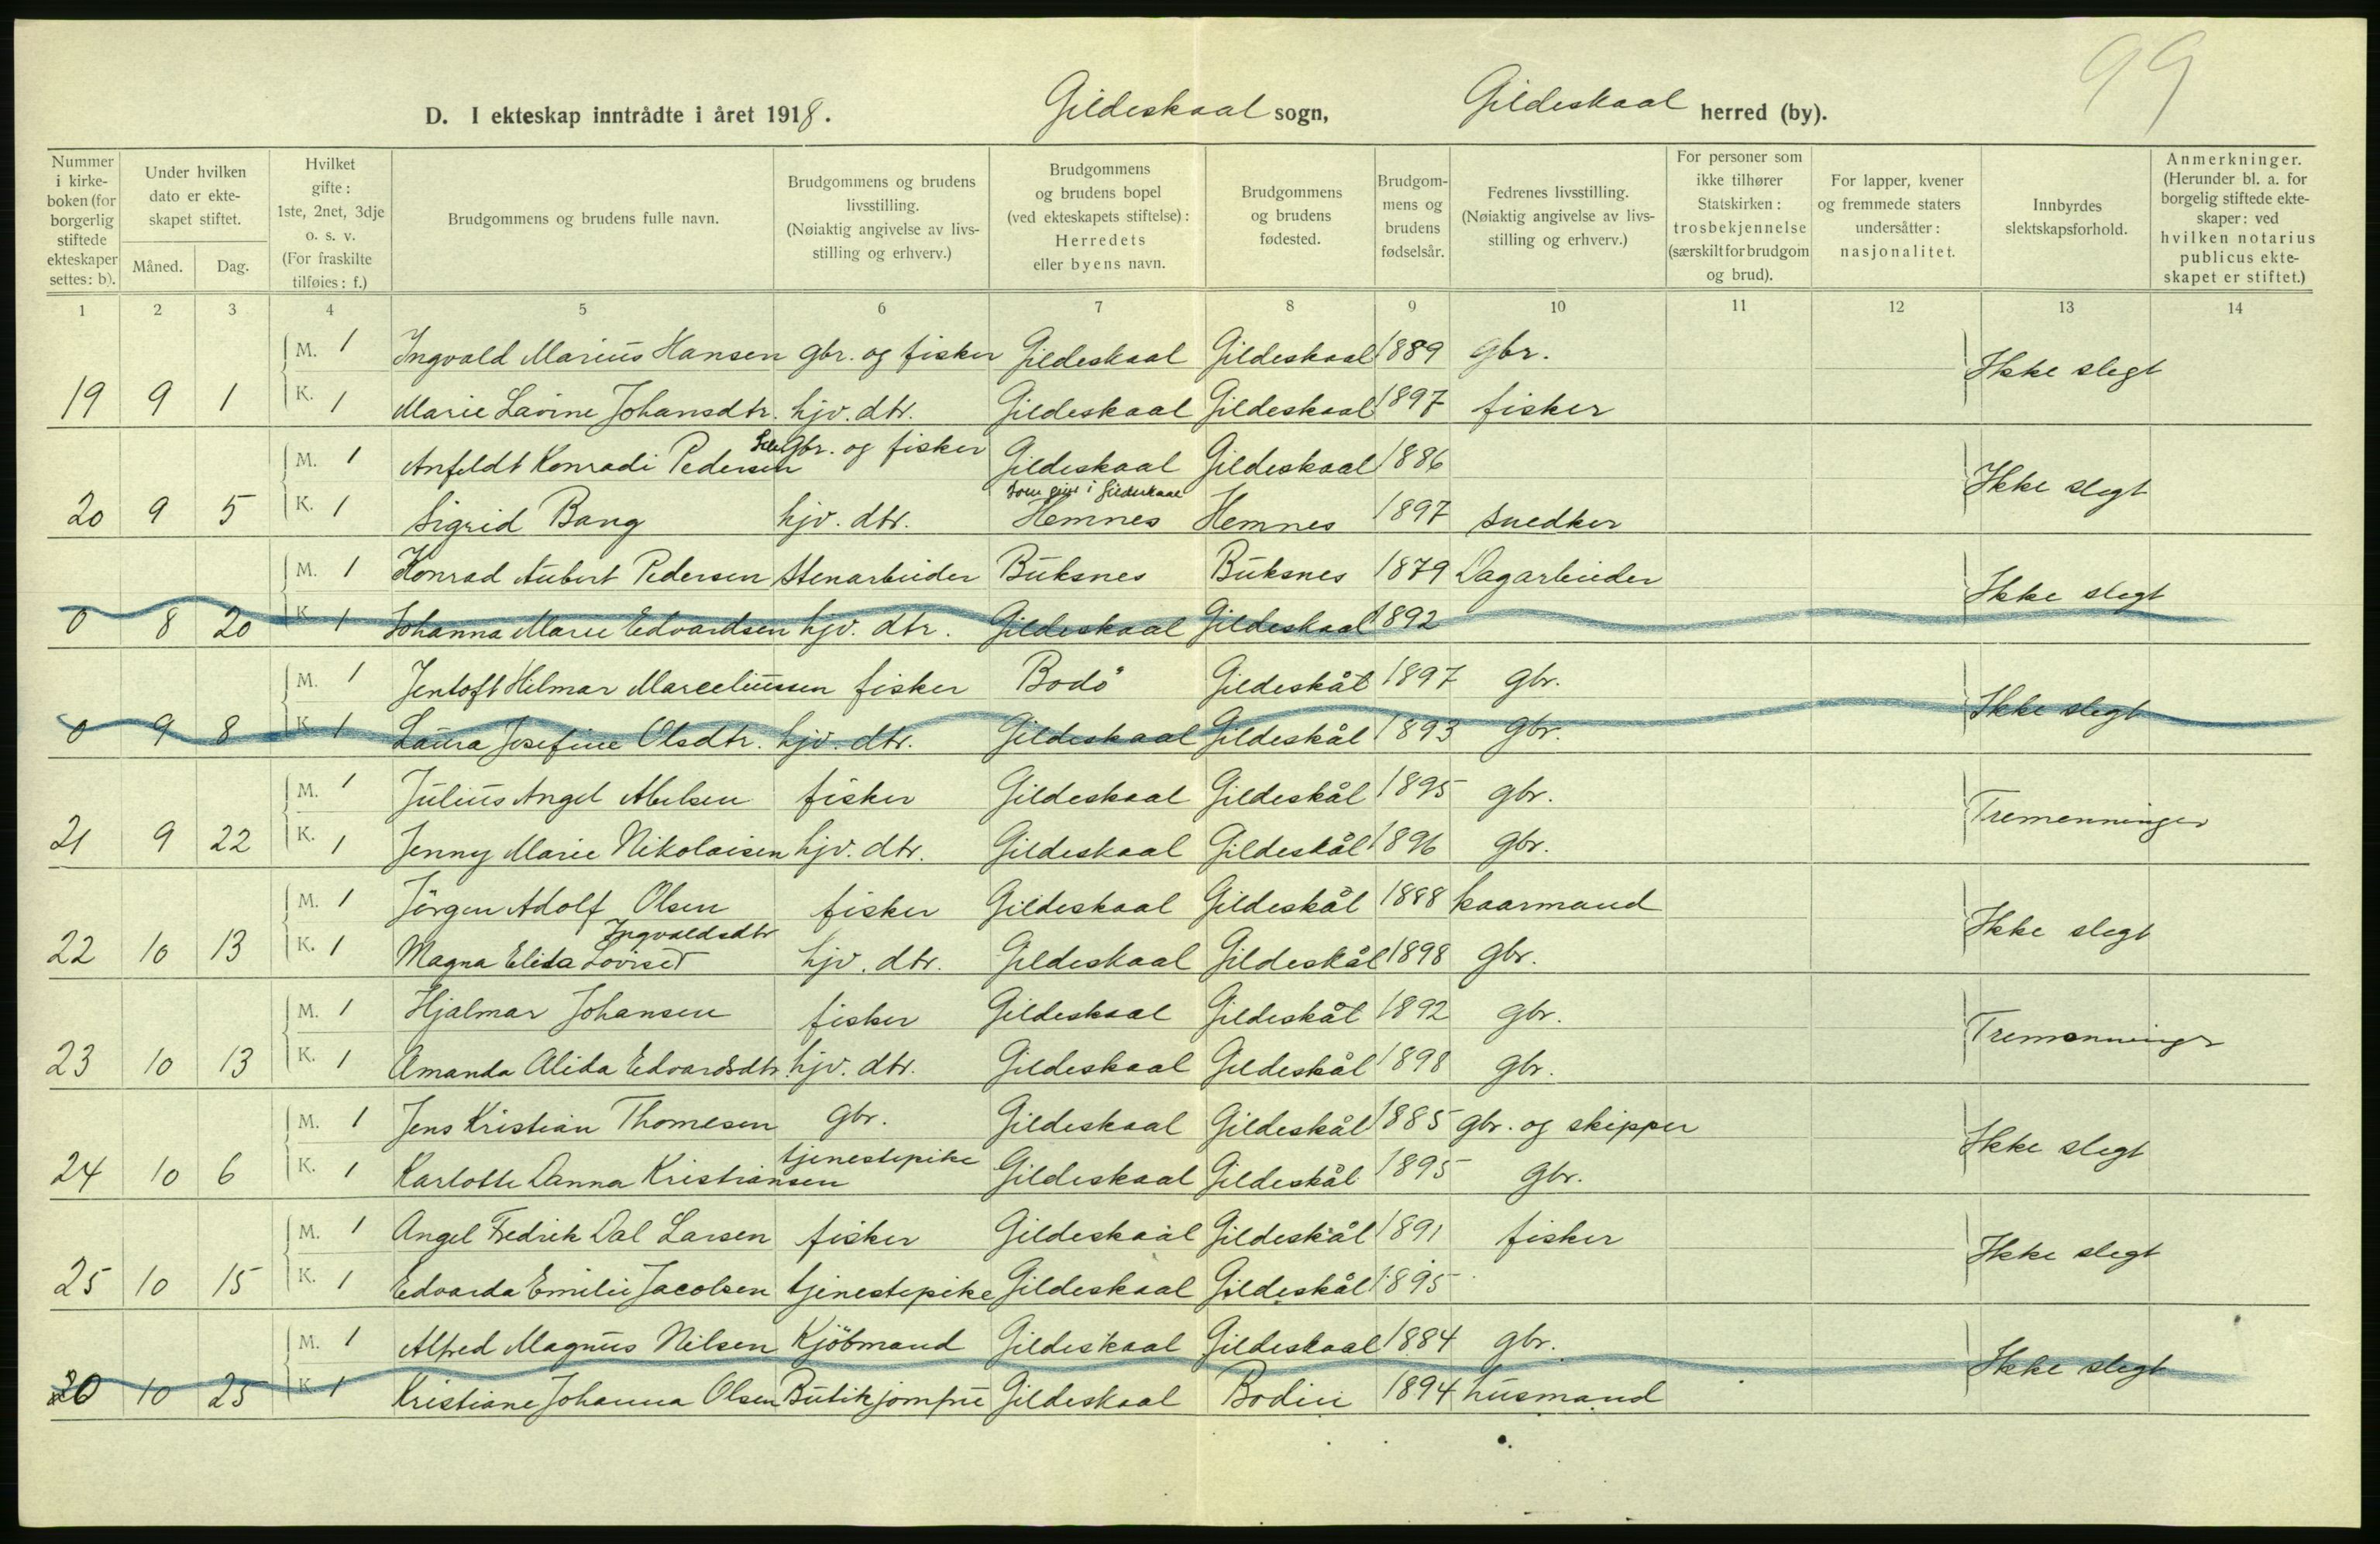 99
D. I ekteskap inntrådte i året 1918. Gildeskaal sogn, Gildeskaal herred (by).
Nummer i kirke-boken (for borgerlig stiftede ekteskaper settes: b). Under hvilken dato er ekte-skapet stiftet. Måned. Dag. Hvilket gifte: 1ste, 2net, 3dje o. s. v. (For fraskilte tilføies: f.) Brudgommens og brudens fulle navn. Brudgommens og brudens livsstilling. (Nøiaktig angivelse av livs-stilling og erhverv.) Brudgommens og brudens bopel (ved ekteskapets stiftelse): Herredets eller byens navn. Brudgommens og brudens fødested. Brudgom-mens og brudens fødselsår. Fedrenes livsstilling. (Nøiaktig angivelse av livs-stilling og erhverv.) For personer som ikke tilhører Statskirken: trosbekjennelse (særskilt for brudgom og brud). For lapper, kvener og fremmede staters undersåtter: nasjonalitet. Innbyrdes slektskapsforhold. Anmerkninger. (Herunder bl. a. for borgelig stiftede ekte-skaper: ved hvilken notarius publicus ekte-skapet er stiftet.)
1 2 3 4 5 6 7 8 9 10 11 12 13 14
M. 1 Ingvald Marius Hansen gbr. og fisker Gildeskaal Gildeskaal 1889 gbr. Ikke slegt
19 9 1 K. 1 Marie Lavine Johansdtr. hjv. dtr. Gildeskaal Gildeskaal 1897 fisker
M. 1 Anfeldt Konradi Pedersen gbr. og fisker Gildeskaal Gildeskaal 1886 Ikke slegt
i Gildeskaal
20 9 5 K. 1 Sigrid Bang hjv. dtr. Hemnes Hemnes 1897 snedker
M. 1 Konrad Aubert Pedersen Stenarbeider Buksnes Buksnes 1879 Dagarbeider Ikke slegt
0 8 20 K 1 Johanna Marie Edvardsen hjv. dtr. Gildeskaal Gildeskaal 1892
M. 1 Jentoft Hilmar Marceliussen fisker Bodö Gildeskål 1897 gbr. Ikke slegt
0 9 8 K 1 Laura Josefine Olsdtr. hjv. dtr. Gildeskaal Gildeskål 1893 gbr.
M. 1 Julius Angel Abelsen fisker Gildeskaal Gildeskål 1895 gbr. Tremenninger
21 9 22 K. 1 Jenny Marie Nikolaisen hjv. dtr. Gildeskaal Gildeskål 1896 gbr.
M. 1 Jörgen Adolf Olsen fisker Gildeskaal Gildeskål 1888 kaarmand Ikke slegt
Ingvaldsdtr
22 10 13 K. 1 Magna Elida Lovise hjv. dtr. Gildeskaal Gildeskål 1898 gbr.
M. 1 Hjalmar Johansen fisker Gildeskaal Gildeskål 1892 gbr. Tremenninger
23 10 13 K. 1 Amanda Alida Edvardsdtr hjv. dtr. Gildeskaal Gildeskål 1898 gbr.
M. 1 Jens Kristian Thomesen gbr. Gildeskaal Gildeskål 1885 gbr. og skipper Ikke slegt
24 10 6 K. 1 Karlotte Danna Kristiansen tjenestepike Gildeskaal Gildeskål 1895 gbr.
M. 1 Angel Fredrik Dal Larsen fisker Gildeskaal Gildeskål 1891 fisker Ikke slegt
25 10 15 K. 1 Edvarda Emilie Jacobsen tjenestepike Gildeskaal Gildeskål 1895
M. 1 Alfred Magnus Nilsen Kjöbmand Gildeskaal Gildeskaal 1884 gbr. Ikke slegt
0 10 25 K 1 Kristiane Johanna Olsen Butikjomfru Gildeskaal Bodin 1894 husmand